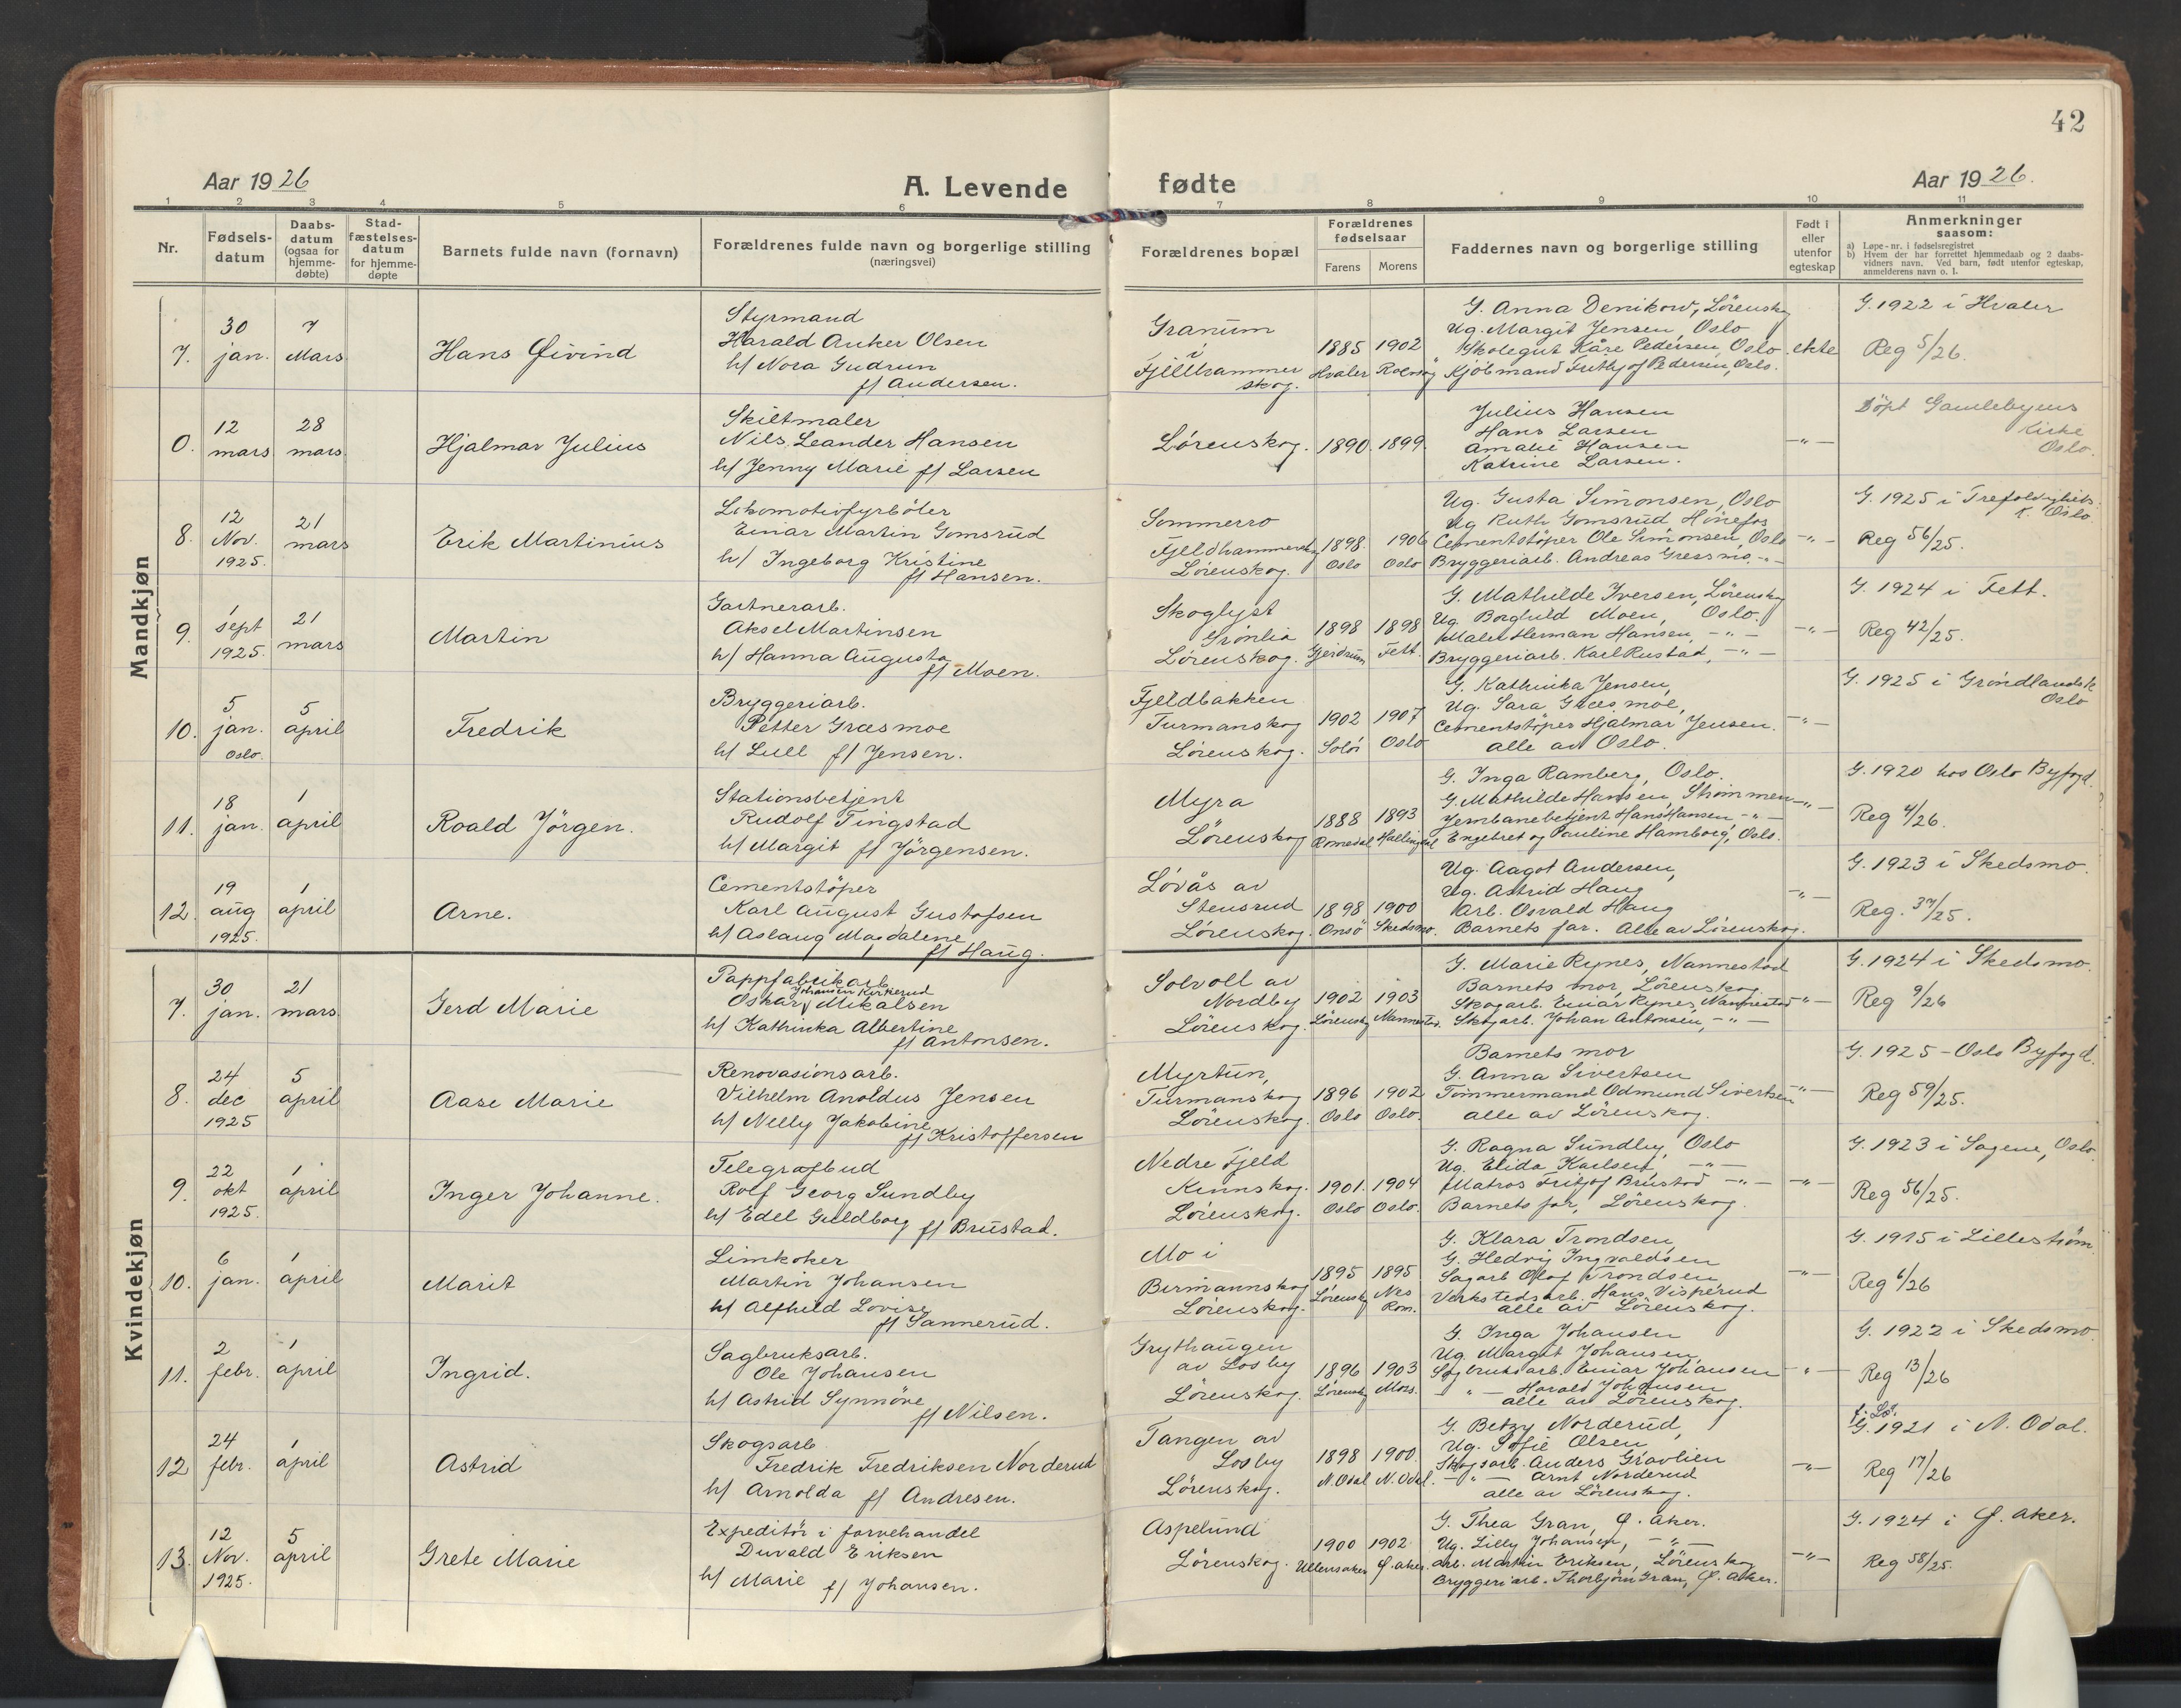 42
Aar 1926
A. Levende fødte
Aar 1926.
1 2 3 4 5 6 7 8 9 10 11
Nr.
Fødsels-
datum
Daabs-
datum
(ogsaa for
hjemme-
døbte)
Stad-
fæstelses-
datum
for hjemme-
døpte
Barnets fulde navn (fornavn)
Forældrenes fulde navn og borgerlige stilling
(næringsvei)
Forældrenes bopæl
Forældrenes
fødselsaar
Farens Morens
Faddernes navn og borgerlige stilling
Født i
eller
utenfor
egteskap
Anmerkninger
saasom:
a) Løpe-nr. i fødselsregistret
b) Hvem der har forrettet hjemmedaab og 2 daabs-
vidners navn. Ved barn, født utenfor egteskap,
anmelderens navn o. l.
Mandkjøn
7. 30 jan. 7 Mars
Hans Øivind
Styrmand
Harald Anker Olsen
h/ Nora Gudrun
f/ Andersen.
Granum
i
Fjellhammer
skog.
1885 Hvaler 1902
G. Anna Denikow, Lörenskog
Ug. Margit Jensen, Oslo
Skolegut Kåre Pedersen Oslo
Kjöbmand Fritjof Pedersen, Oslo.
ekte
G. 1922 i Hvaler
Reg 5/26.
0. 12 mars 28 mars
Hjalmar Julius
Skiltmaler
Nils Leander Hansen
h/ Jenny Marie f/ Larsen
Lörenskog. 1890. 1899.
Julius Hansen
Hans Larsen
Amalie Hansen
Katrine Larsen.
-"-
Döpt Gamlebyens
Kirke
Oslo.
8. 12 Nov. 1925. 21 mars
Erik Martinius
Lokomotivfyrböter
Einar Martin Gomsrud
h/ Ingeborg Kristine
f/ Hansen.
Sommerro
Fjeldhammerskog
Lörenskog.
1898. Oslo 1906 Oslo
Ug. Gusta Simonsen, Oslo
Ug Ruth Gomsrud Hönefos
Cementstöper Ole Simonsen, Oslo
Bryggeriarb. Andreas Gressmo -"-
-"-
G. 1925 i Trefoldigheds
K. Oslo.
Reg 56/25.
9. 1 sept 1925. 21 mars
Martin
Gartnerarb.
Aksel Martinsen
h/ Hanna Augusta
f/ Moen.
Skoglyst
Grönlia
Lörenskog.
1898 Gjerdrum 1898 Fett.
G. Mathilde Iversen, Lörenskog
Ug. Borghild Moen, Oslo.
Maler Herman Hansen, -"-
Bryggeriarb. Karl Rustad, -"-
-"-
G. 1924 i Fett.
Reg 42/25.
10. 5 jan. Oslo. 5 april
Fredrik
Bryggeriarb.
Petter Græsmoe
h/ Lull f/ Jensen.
Fjeldbakken
Turmanskog
Lörenskog.
1902 Solör 1907 Oslo
G. Kathinka Jensen,
Ug. Sara Græsmoe,
Cementstöper Hjalmar Jensen.
alle av Oslo.
-"-
G. 1925 i Gröndlandsk
Oslo
11. 18 jan. 1 april
Roald Jörgen.
Stationsbetjent
Rudolf Tingstad
h/ Margit f/ Jörgensen.
Myra
Lörenskog
1888 Romedal 1893 Hallingdal
G. Inga Ramberg, Oslo.
G. Mathilde Hansen, Strömmen
Jernbanebetjent Hans Hansen -"-
Engebret og Pauline Hamborg, Oslo.
-"-
G. 1920 hos Oslo Byfogd.
Reg 4/26.
12. 19 aug 1925. 1 april
Arne.
Cementstöper
Karl August Gustafsen
h/ Aslaug Magdalene
f/ Haug.
Lövås av
Stensrud
Lörenskog.
1898 Onsö 1900 Skedsmo.
Ug. Aagot Andersen,
Ug. Astrid Haug
Arb. Osvald Haug
Barnets far. Alle av Lörenskog.
-"-
G. 1923 i Skedsmo.
Reg. 37/25.
Kvindekjøn
7. 30 jan. 21 mars
Gerd Marie
Pappfabrikarb.
Johansen Kirkerud
Oskar Mikalsen
h/ Kathinka Albertine
f/ Antonsen.
Solvoll av
Nordby
Lörenskog.
1902 Lörenskog 1903 Nannestad.
G. Marie Rynes, Nannestad
Barnets mor, Lörenskog.
Skogarb. Einar Rynes, Nannestad
Skogarb. Johan Antonsen, -"-
-"-
G. 1924 i Skedsmo.
Reg 9/26
8. 24 dec 1925 5 april
Aase Marie
Renovasionsarb.
Vilhelm Anoldus Jensen
h/ Nelly Jakobine
f/ Kristoffersen
Myrtun,
Turmanskog
Lörenskog.
1896 Oslo 1902 Oslo.
Barnets mor
G. Anna Sivertsen
Tömmermand Odmund Sivertsen
alle av Lörenskog.
-"-
G. 1925 - Oslo Byfogd.
Reg 59/25.
9. 22 okt 1925. 1 april
Inger Johanne.
Telegrafbud
Rolf Georg Sundby
h/ Edel Guldborg f/ Brustad.
Nedre Fjeld
Kinnskog.
Lörenskog.
1901. Oslo 1904 Oslo.
G. Ragna Sundby, Oslo
Ug. Elida Karlsen, -"-
Matros Fritjof Brustad -"-
Barnets far, Lörenskog.
-"-
G. 1923 i Sagene, Oslo.
Reg 56/25.
10. 6 jan. 1 april
Marit
Limkoker
Martin Johansen
h/ Alfhild Lovise
f/ Sannerud.
Mo i
Birmannskog
Lörenskog.
1895 Lörenskog 1895 Nes Rom.
G. Klara Trondsen
G. Hedvig Ingvaldsen
Sagarb Olaf Trondsen
Verkstedsarb. Hans Visperud
alle av Lörenskog.
-"-
G. 1915 i Lilleström.
Reg 6/26
11. 2 febr. 1 april
Ingrid.
Sagbruksarb.
Ole Johansen
h/ Astrid Synnöve
f/ Nilsen.
Grythaugen
av Losby
Lörenskog.
1896 Lörenskog 1903 Moss.
G. Inga Johansen
Ug. Margit Johansen
Sagbruksarb. Einar Johansen
-"- Harald Johansen
alle av Lörenskog.
-"-
G. 1922 i Skedsmo.
Reg 13/26
12 24 febr. 1 april
Astrid
Skogsarb.
Fredrik Fredriksen Norderud
h/ Arnolda f/ Andresen.
Tangen av
Losby
Lörenskog.
1898 N. Odal 1900. N. Odal.
G. Betzy Norderud,
Ug. Sofie Olsen
Skogsarb. Anders Gravlien
-"- Arnt Norderud
alle av Lörenskog.
-"-
G. 1921 i N. Odal.
Reg 17/26
13. 12 Nov. 1925. 5 april
Grete Marie
Expeditör i farvehandel
Duvald Eriksen
h/ Marie f/ Johansen.
Aspelund
Lörenskog.
1900 Ullensaker 1902. Ø. Aker.
G. Thea Gran, Ø. Aker.
Ug. Lilly Johansen, -"-
Arb. Martin Eriksen, Lörenskog
Bryggeriarb. Thorbjörn Gran, Ø. Aker.
-"-
G. 1924 i Ø. Aker.
Reg 58/25.